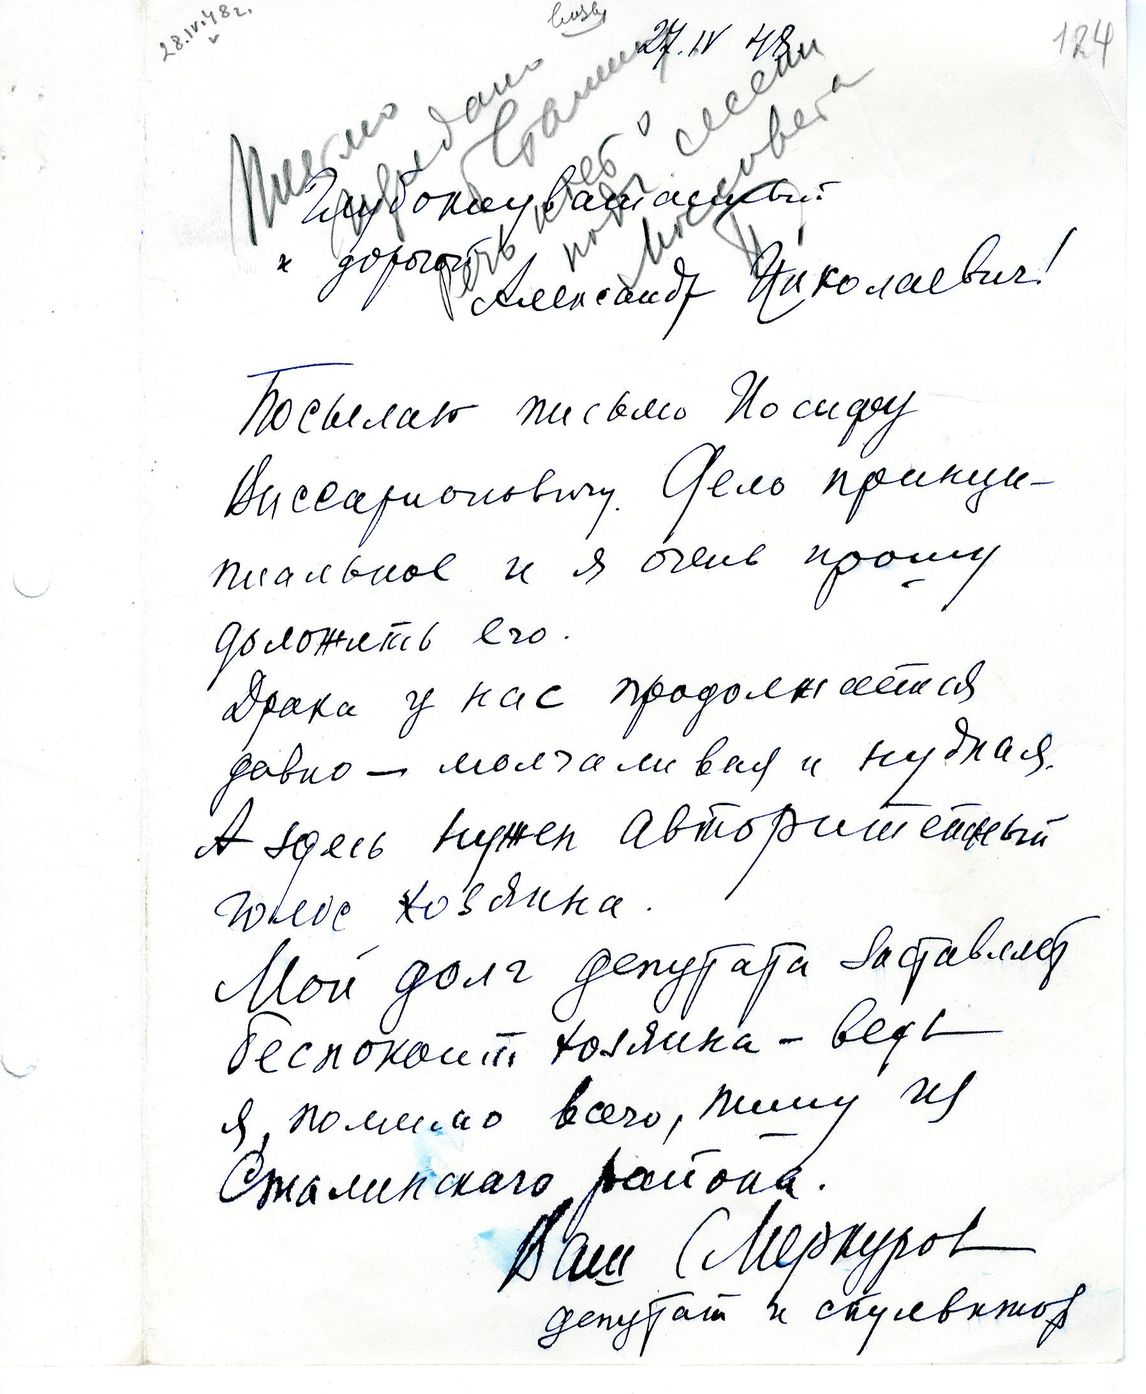 28.IV.48г.
27.IV 48
124
Письмо
передано
Сталину
Глубокоуважаемый
и дорогой
Александр Николаевич!
Посылаю письмо Иосифу
Виссарионовичу. Дело принци-
пиальное и я очень прошу
доложить его.
Драка у нас продолжается
давно — молчаливая и нудная.
А здесь нужен авторитетный
голос хозяина.
Мой долг депутата заставляет
беспокоить хозяина — ведь
я, помимо всего, пишу из
Сталинского района.
Ваш С Меркуров
депутат и скульптор